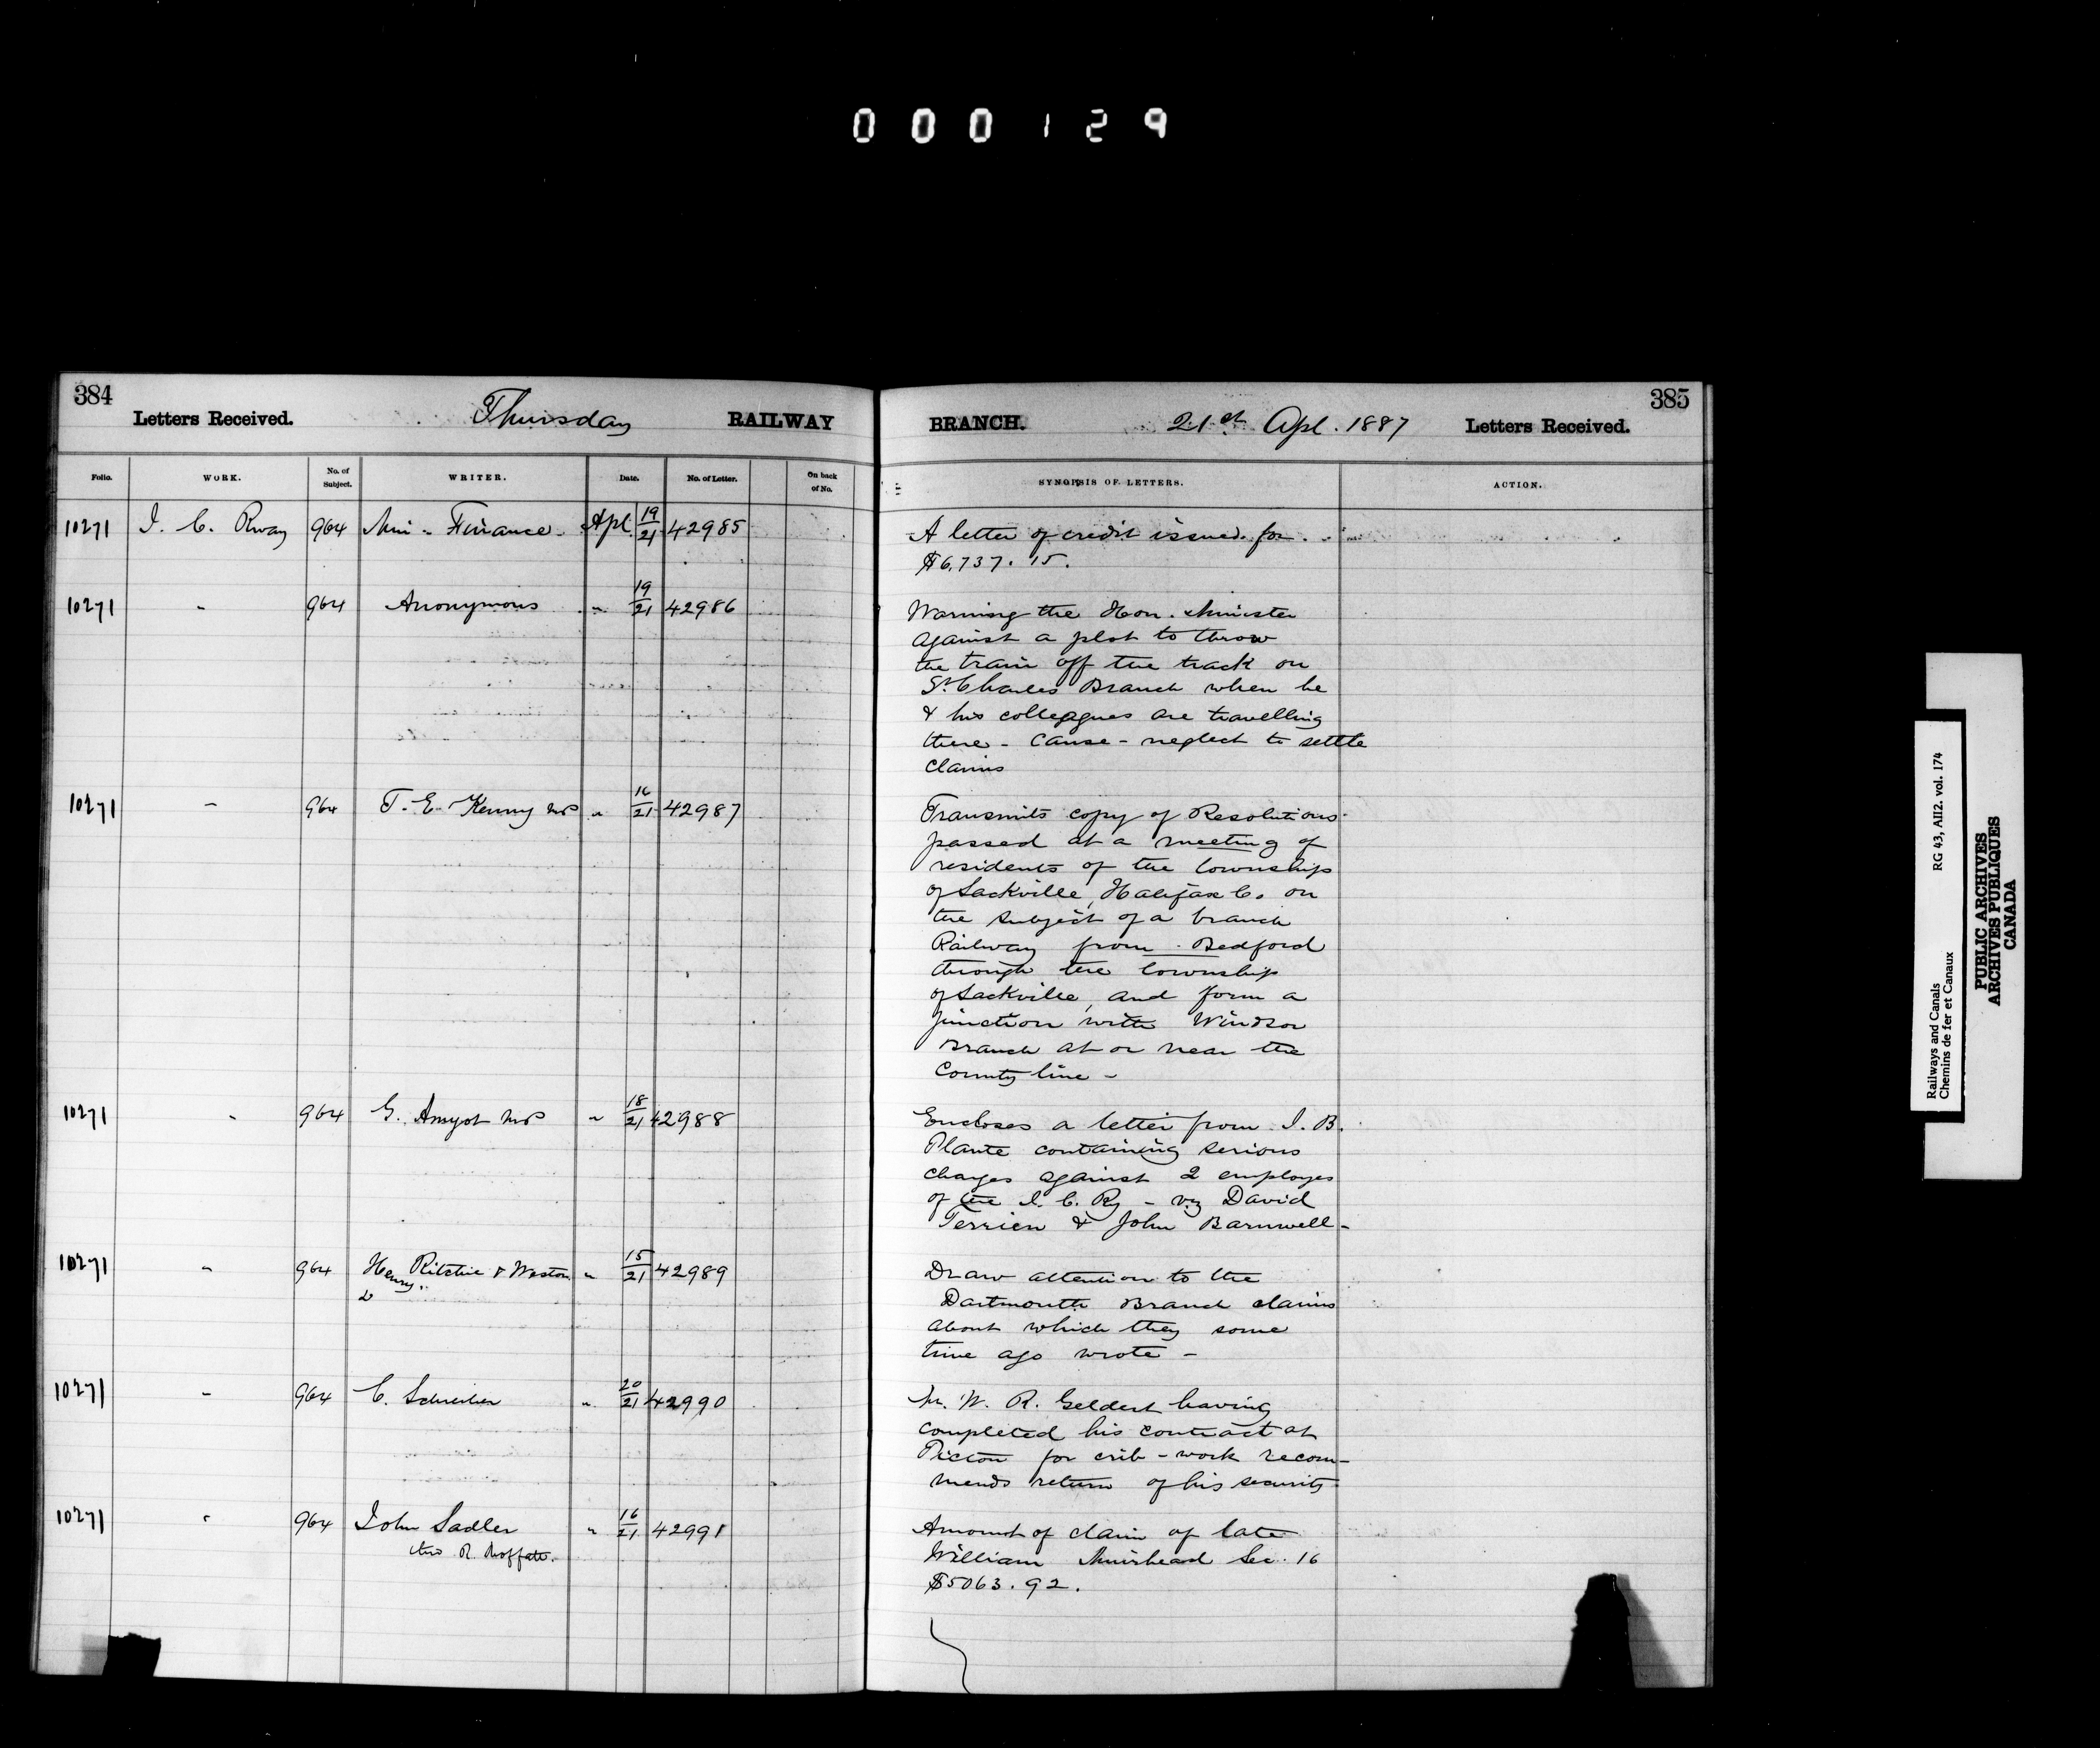 000129
384
Letters Received.
Thursday
RAILWAY
BRANCH.
21st Apl. 1887
Letters Received.
385
Folio.
WORK.
No. of Subject.
WRITER.
Date.
No. of Letter.
On back of No.
SYNOPSIS OF LETTERS.
ACTION.
10271 I. C. Rway 964 Min - Finance - Apl 19/21 42985
A letter of credit issued for
$6,737.15.
10271 " 964 Anonymous " 19/21 42986
Warning the Hon. Minister
against a plot to throw
the train off the track on
St. Charles Branch when he
& his colleagues are travelling
there - Cause - neglect to settle
claims
10271 " 964 T. E. Kenny MP " 16/21 42987
Transmits copy of Resolutions
passed at a meeting of
residents of the township
of Sackville, Halifax Co. on
the subject of a branch
Railway from Bedford
through the township
of Sackville, and form a
junction with Windsor
Branch at or near the
County line -
10271 " 964 G. Amyot MP " 18/21 42988
Encloses a letter from I. B.
Plante containing serious
charges against 2 employes
of the I. C. Ry - viz David
Terrien & John Barnwell -
10271 " 964 Henry Ritchie & Weston " 15/21 42989
Draw attention to the
Dartmouth Branch claims
about which they some
time ago wrote -
10271 " 964 C. Schreiber " 20/21 42990
Mr. W. R. Geldert having
completed his contract at
Pictou for crib-work recom-
mends return of his security
10271 " 964 John Sadler " 16/21 42991
thro R. Moffatt.
Amount of claim of late
William Muirhead Sec. 16
$5063.92.
Railways and Canals RG 43, AII2. vol. 174
Chemins de fer et Canaux
PUBLIC ARCHIVES
ARCHIVES PUBLIQUES
CANADA